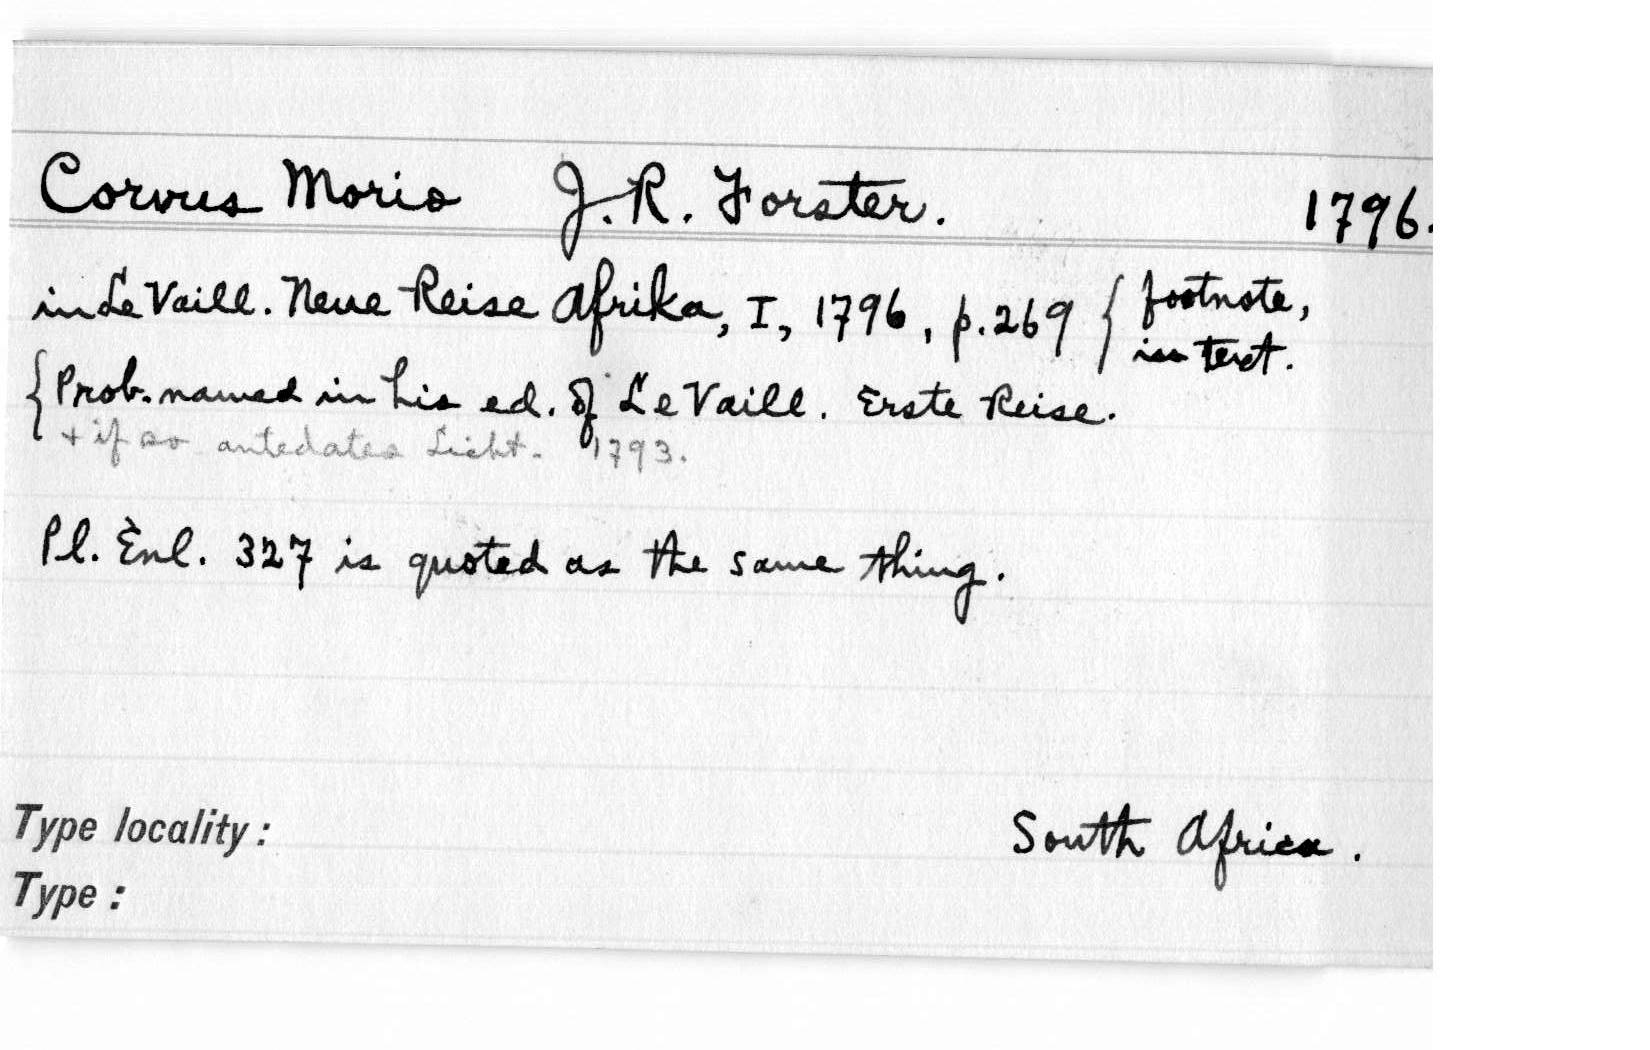 Corvus Morio J. R. Forster. 1796.
in Le Vaill. Neue Reise Afrika, I, 1796, p. 269 { footnote,
in text.
{ Prob. named in his ed. of Le Vaill. Erste Reise.
+ if so antedates Licht. 1793.
Pl. Enl. 327 is quoted as the same thing.
Type locality: South Africa.
Type: